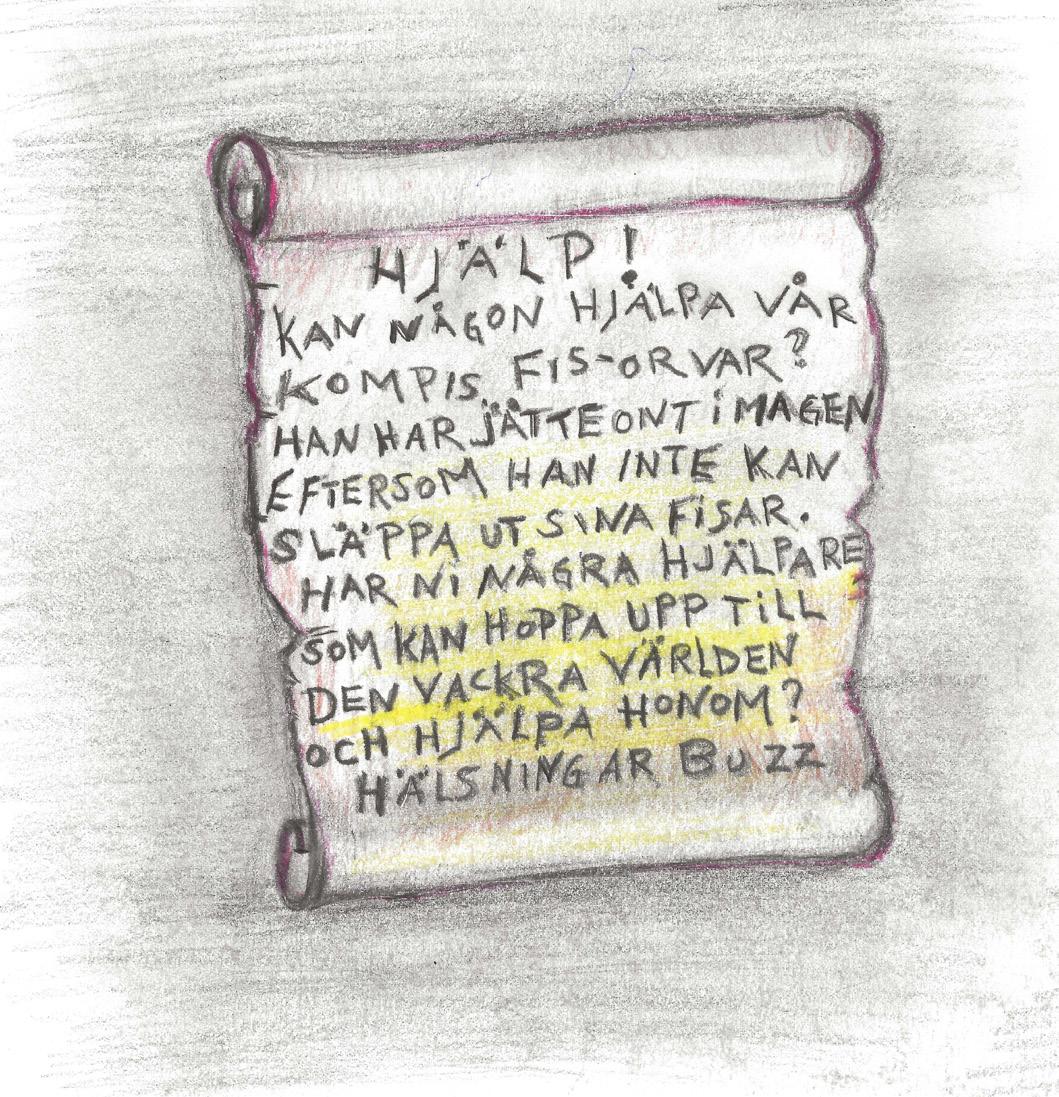 HJÄLP!
KAN NÅGON HJÄLPA VÅR
KOMPIS FIS-ORVAR?
HAN HAR JÄTTEONT I MAGEN
EFTERSOM HAN INTE KAN
SLÄPPA UT SINA FISAR.
HAR NI NÅGRA HJÄLPARE
SOM KAN HOPPA UPP TILL
DEN VACKRA VÄRLDEN
OCH HJÄLPA HONOM?
HÄLSNINGAR BUZZ